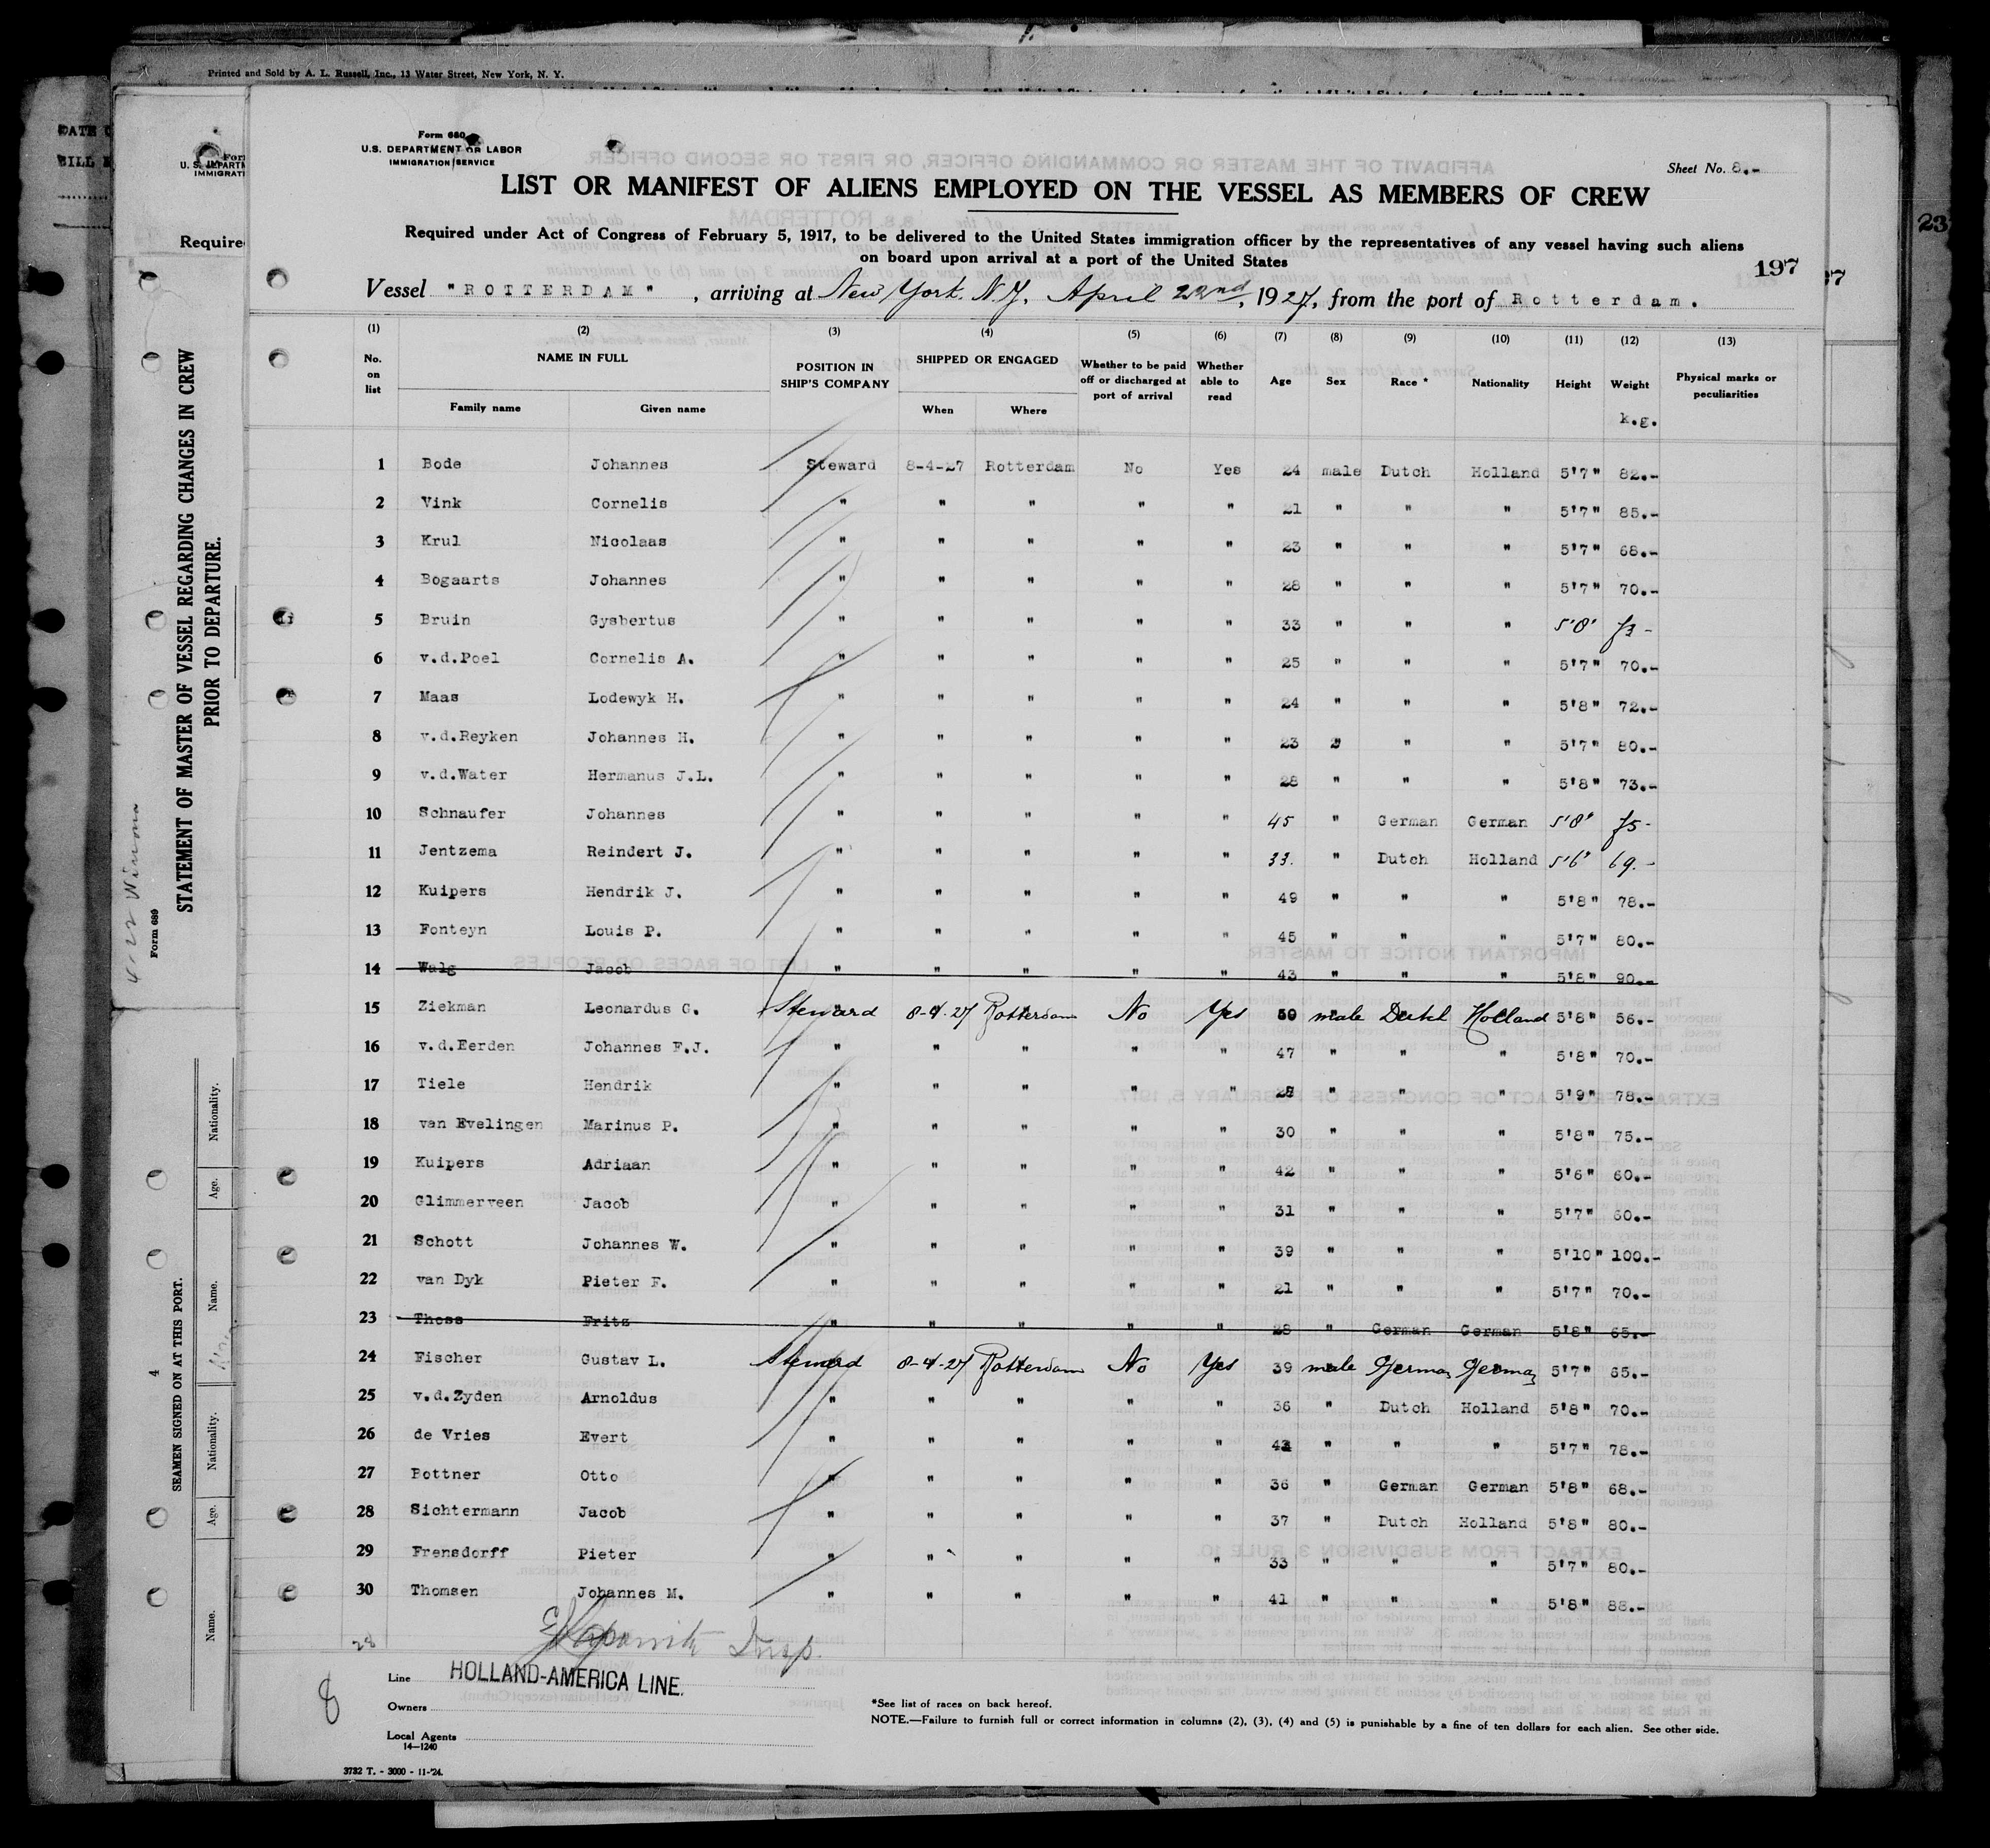 Printed and Sold by A. L. Russell, Inc., 13 Water Street, New York, N. Y.
Form 680
U.S. DEPARTMENT OF LABOR
IMMIGRATION SERVICE
Sheet No. 8.-
LIST OR MANIFEST OF ALIENS EMPLOYED ON THE VESSEL AS MEMBERS OF CREW
Required under Act of Congress of February 5, 1917, to be delivered to the United States immigration officer by the representatives of any vessel having such aliens
on board upon arrival at a port of the United States
197
Vessel "ROTTERDAM", arriving at New York. N.Y. April 22nd, 1927, from the port of Rotterdam.
(1) (2) (3) (4) (5) (6) (7) (8) (9) (10) (11) (12) (13)
No. on list NAME IN FULL Family name Given name POSITION IN SHIP'S COMPANY SHIPPED OR ENGAGED When Where Whether to be paid off or discharged at port of arrival Whether able to read Age Sex Race * Nationality Height Weight k.g. Physical marks or peculiarities
1 Bode Johannes Steward 8-4-27 Rotterdam No Yes 24 male Dutch Holland 5'7" 82.-
2 Vink Cornelis " " " " " 21 " " " 5'7" 85.-
3 Krul Nicolaas " " " " " 23 " " " 5'7" 68.-
4 Bogaarts Johannes " " " " " 28 " " " 5'7" 70.-
5 Bruin Gysbertus " " " " " 33 " " " 5'8" 73-
6 v.d.Poel Cornelis A. " " " " " 25 " " " 5'7" 70.-
7 Maas Lodewyk H. " " " " " 24 " " " 5'8" 72.-
8 v.d.Reyken Johannes H. " " " " " 23 " " " 5'7" 80.-
9 v.d.Water Hermanus J.L. " " " " " 28 " " " 5'8" 73.-
10 Schnaufer Johannes " " " " " 45 " German German 5'8" 75-
11 Jentzema Reindert J. " " " " " 33. " Dutch Holland 5'6" 69.-
12 Kuipers Hendrik J. " " " " " 49 " " " 5'8" 78.-
13 Fonteyn Louis P. " " " " " 45 " " " 5'7" 80.-
14 Walg Jacob " " " " " 43 " " " 5'8" 90.-
15 Ziekman Leonardus G. Steward 8-4-27 Rotterdam No Yes 50 male Dutch Holland 5'8" 56.-
16 v.d.Eerden Johannes F.J. " " " " " 47 " " " 5'8" 70.-
17 Tiele Hendrik " " " " " " " " 5'9" 78.-
18 van Evelingen Marinus P. " " " " " 30 " " " 5'8" 75.-
19 Kuipers Adriaan " " " " " 42 " " " 5'6" 60.-
20 Glimmerveen Jacob " " " " " 31 " " " 5'7" 60.-
21 Schott Johannes W. " " " " " 39 " " " 5'10" 100.-
22 van Dyk Pieter F. " " " " " 21 " " " 5'7" 70.-
23 Thoss Fritz " " " " " 28 " German German 5'8" 65.-
24 Fischer Gustav L. Steward 8-4-27 Rotterdam No Yes 39 male German German 5'7" 65.-
25 v.d.Zyden Arnoldus " " " " " 36 " Dutch Holland 5'8" 70.-
26 de Vries Evert " " " " " " " " 5'7" 78.-
27 Bottner Otto " " " " " 36 " German German 5'8" 68.-
28 Sichtermann Jacob " " " " " 37 " Dutch Holland 5'8" 80.-
29 Frensdorff Pieter " " " " " 33 " " " 5'7" 80.-
30 Thomsen Johannes M. " " " " " 41 " " " 5'8" 88.-
28
Insp.
8
Line HOLLAND-AMERICA LINE.
Owners
Local Agents
14-1240
*See list of races on back hereof.
NOTE.—Failure to furnish full or correct information in columns (2), (3), (4) and (5) is punishable by a fine of ten dollars for each alien. See other side.
3732 T. - 3000 - 11-'24.
STATEMENT OF MASTER OF VESSEL REGARDING CHANGES IN CREW
PRIOR TO DEPARTURE.
Form 689
4-22 Winona
SEAMEN SIGNED ON AT THIS PORT.
4
Name. Age. Nationality. Name. Age. Nationality.
Require
23